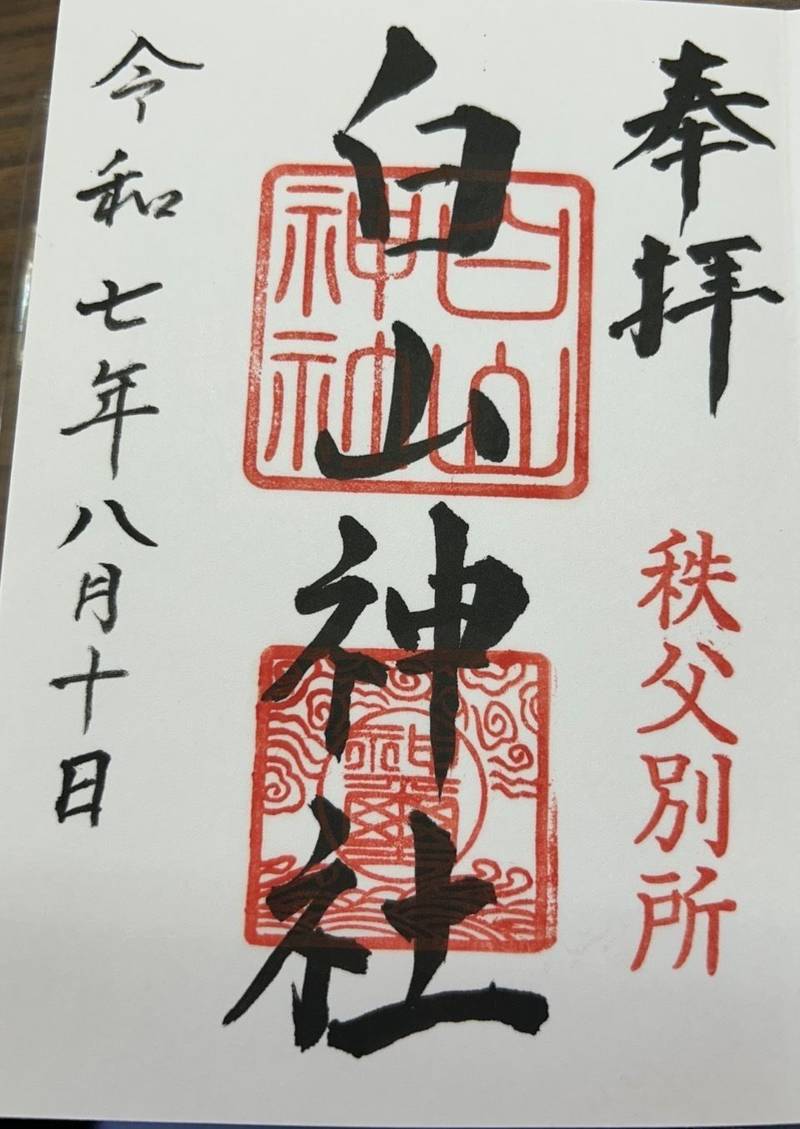 奉拝
秩父別所
白山神社
白山神社
神璽
令和七年八月十日